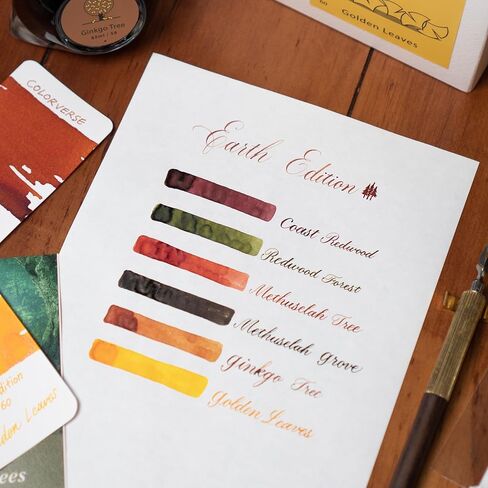 Ginkgo Tree
Golden Leaves
COLORVERSE
Earth Edition
Coast Redwood
Redwood Forest
Methuselah Tree
Methuselah grove
ginkgo Tree
Golden Leaves
60
Leaves
ees